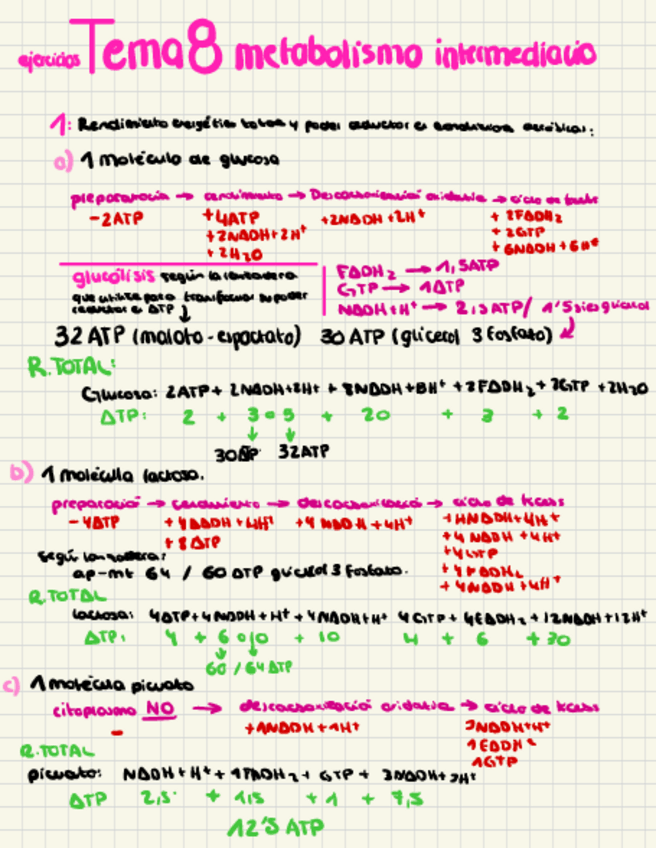 ejercicios Tema 8 metabolismo intermediario
1: Rendimiento energético total y poder reductor en condiciones aeróbicas:
a) 1 molécula de glucosa
preparatoria → rendimiento → Descarboxilació oxidativa → ciclo de
-2ATP +4ATP +2NADH+2H⁺ + 2FADH₂
+2NADH+2H⁺ + 2GTP
+2H₂O + 6NADH+6H⁺
glucólisis según la lanzadera
que utilice para transformar su poder
reductor en ATP ↓
FADH₂ → 1,5ATP
GTP → 1ATP
NADH+H⁺ → 2,5ATP/ 1'5 si es glicerol
32 ATP (malato-espactato) 30 ATP (glicerol 3 fosfato)
R.TOTAL:
Glucosa: 2ATP+ 2NADH+2H⁺ + 8NADH+8H⁺ +2FADH₂+2GTP +2H₂O
ATP: 2 + 3 o 5 + 20 + 3 + 2
↓ ↓
30ATP 32ATP
b) 1 molécula lactosa.
preparació → rendimiento → descarboxilació → ciclo de Krebs
-4ATP +4NADH+4H⁺ +4NADH+4H⁺ +4NADH+4H⁺
+8ATP +4NADH+4H⁺
+4GTP
+4FADH₂
+4NADH+4H⁺
según lanzadera:
ap-mt 64 / 60 ATP glicerol 3 fosfato.
R.TOTAL
lactosa: 4ATP+4NADH+H⁺+4NADH+H⁺ 4GTP+4FADH₂+12NADH+12H⁺
ATP: 4 + 6 o 10 + 10 4 + 6 +30
↓ ↓
60 / 64 ATP
c) 1 molécula piruvato
citoplasma NO → descarboxilació oxidativa → ciclo de Krebs
- +1NADH+1H⁺ 3NADH+H⁺
1FADH
1GTP
R.TOTAL
piruvato: NADH+H⁺+1FADH₂+ GTP + 3NADH+3H⁺
ATP 2,5 + 1,5 +1 + 7,5
12'5 ATP